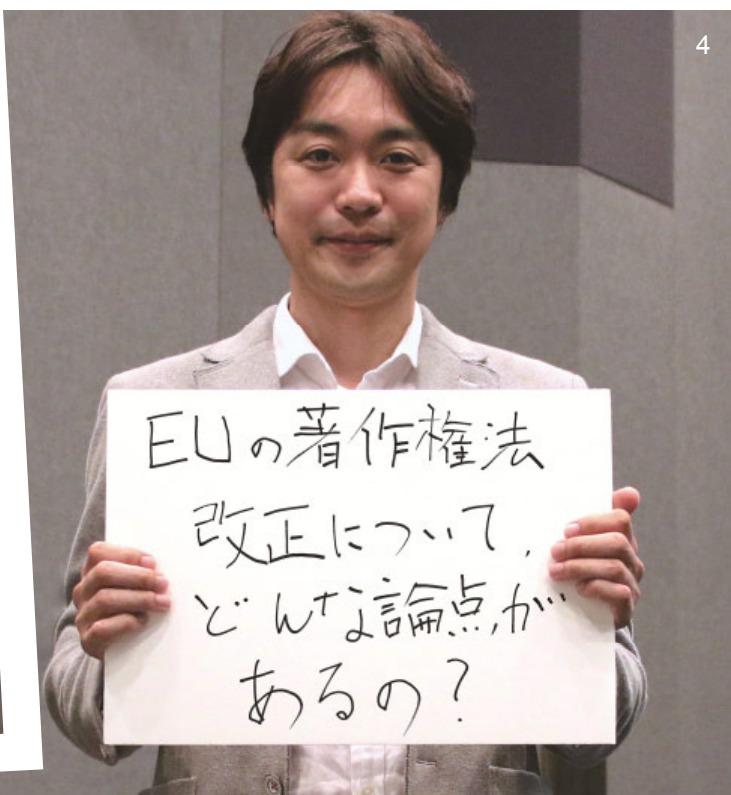 4
EUの著作権法
改正について,
どんな論点が
あるの?